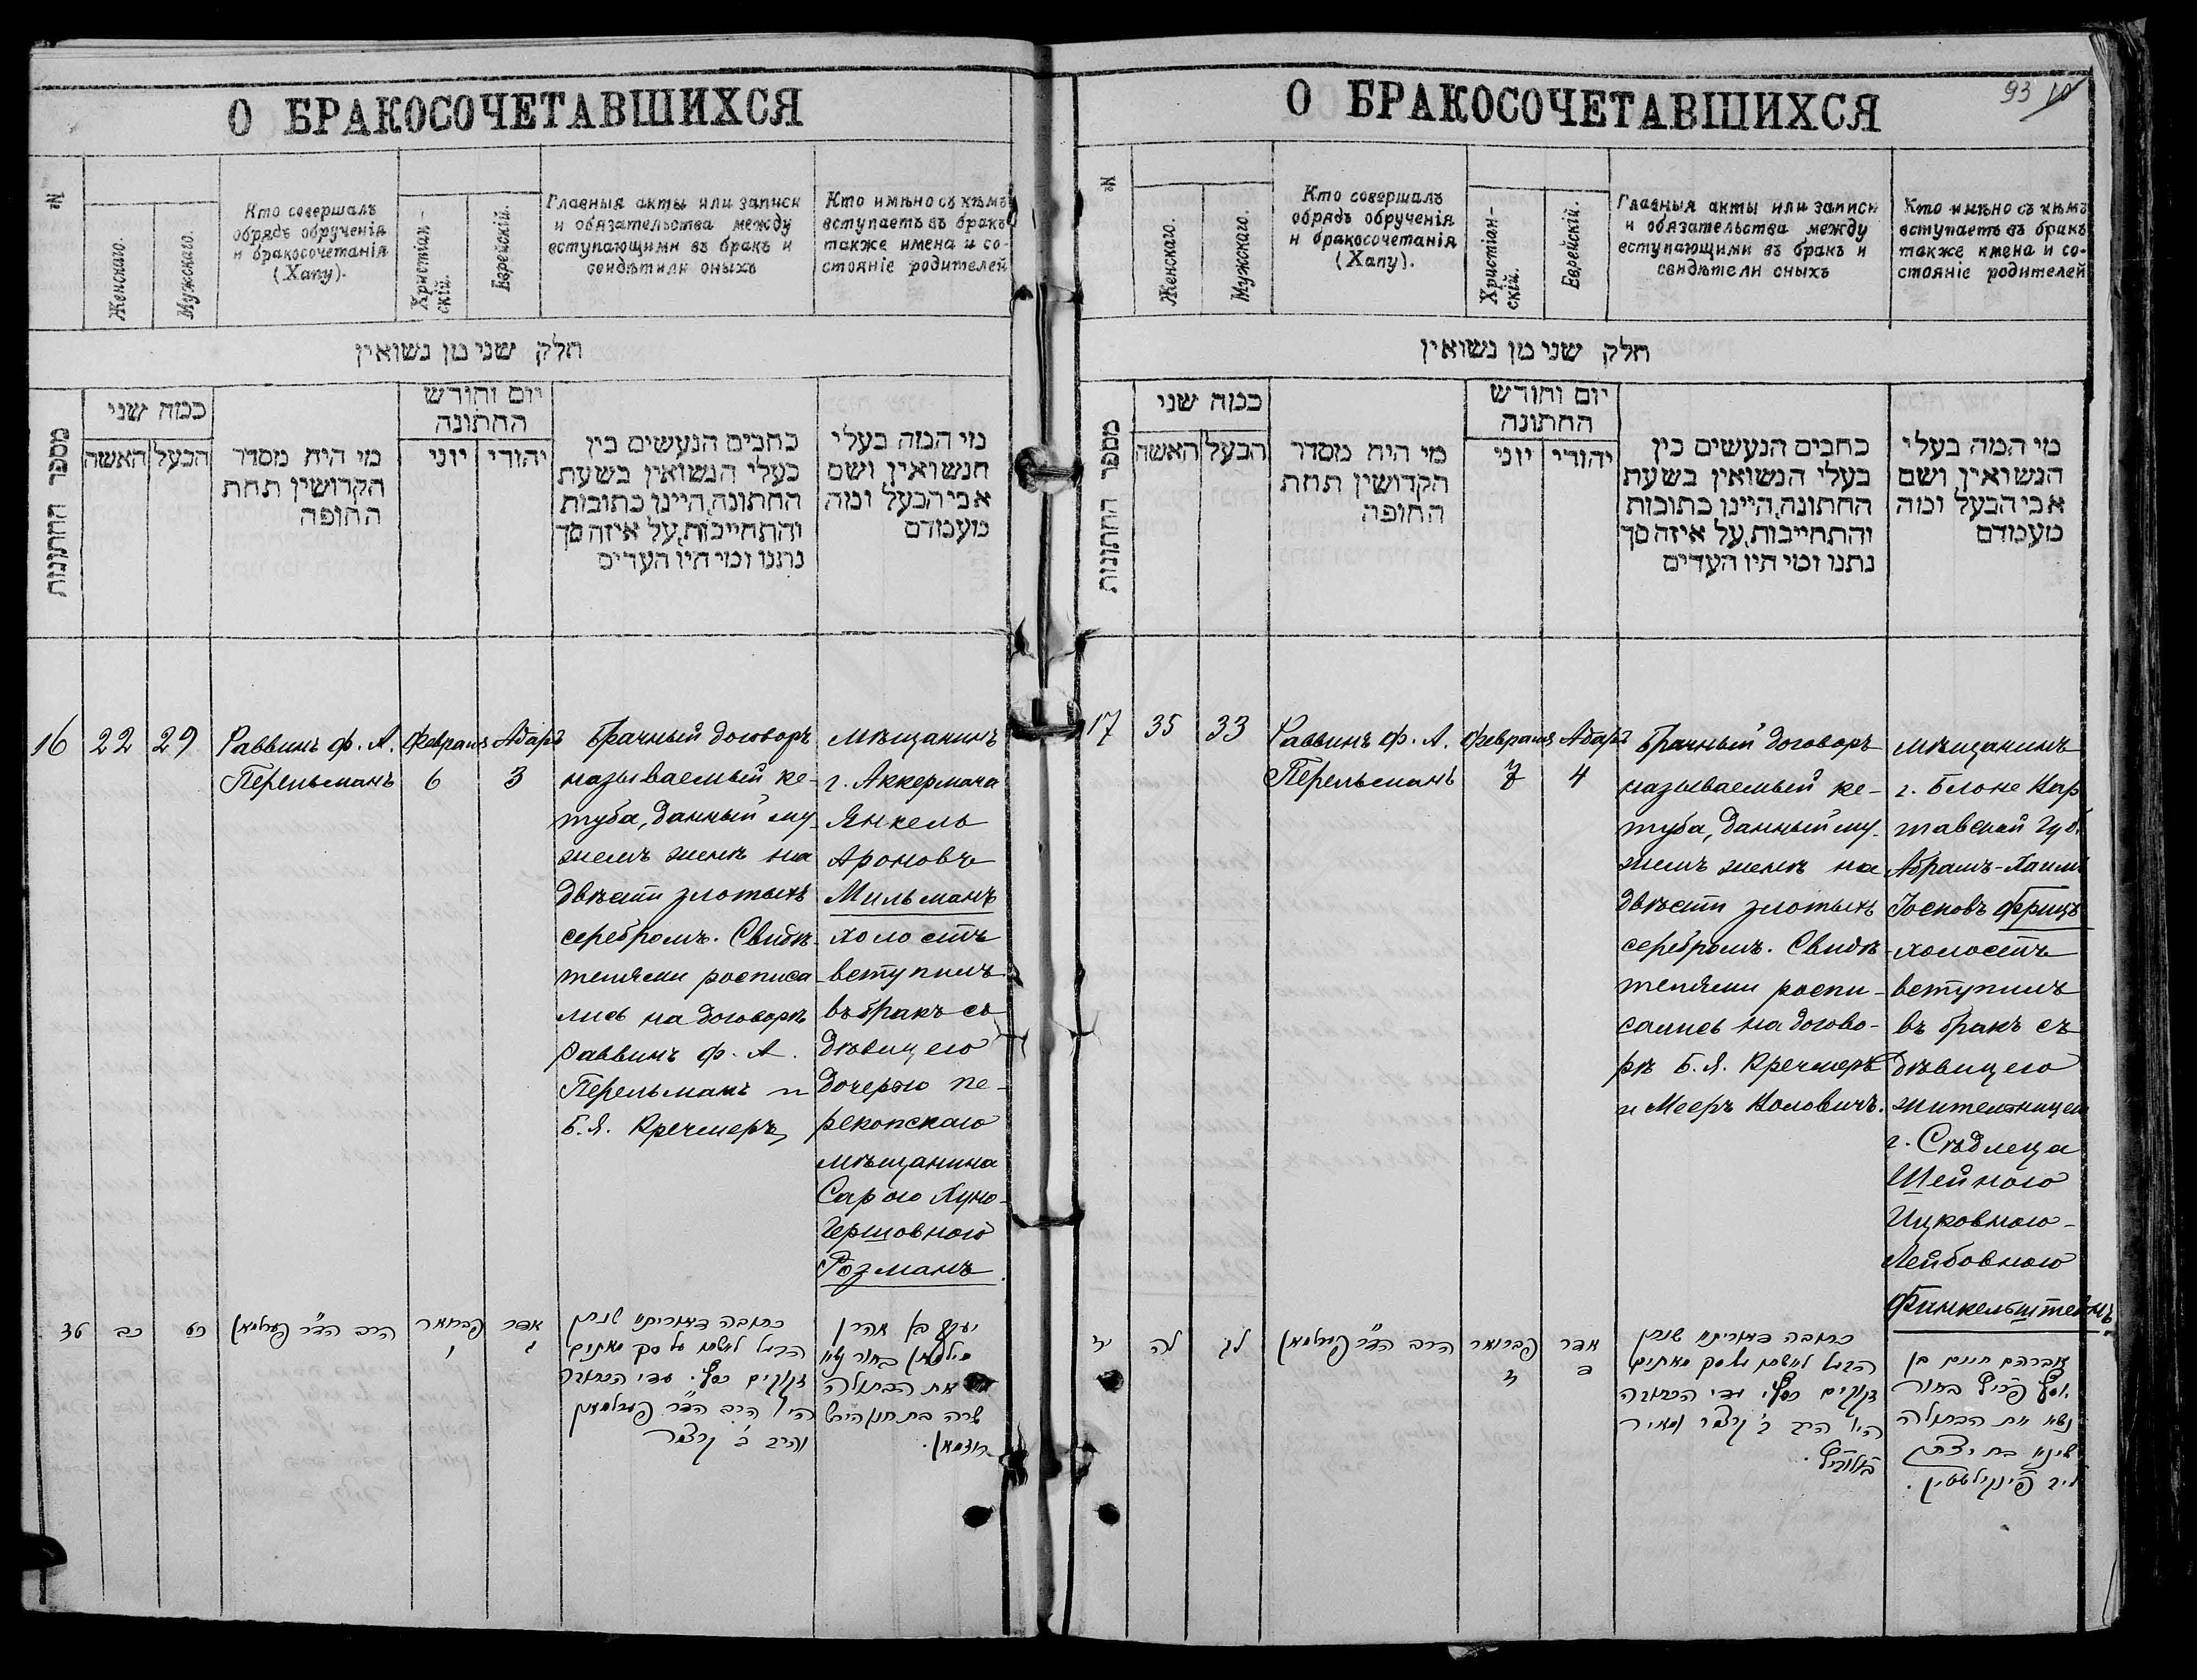 О БРАКОСОЧЕТАВШИХСЯ
№
Женскаго.
Мужскаго.
Кто совершалъ
обрядъ обрученія
и бракосочетанія
(Хапу).
Христіан-
скій.
Еврейскій.
Главныя акты или записи
и обязательства между
вступающими въ бракъ и
свидѣтели оныхъ
Кто имѣно съ кѣмъ
вступаетъ въ бракъ
также имена и со-
стояніе родителей
חלק שני מן נשואין
מספר החתונות
כמה שני
האשה
הבעל
מי היה מסדר
הקדושין תחת
החופה
יום וחודש
החתונה
יוני
יהודי
כתבים הנעשים בין
בעלי הנשואין בשעת
החתונה, היינו כתובות
והתחייבות, על איזה סך
נתנו ומי היו העדים
מי המה בעלי
הנשואין ושם
אבי הבעל ומה
מעמדם
16
22
29
Раввинъ Ф. А.
Перельманъ
Февраля
6
Адаръ
3
Брачный договоръ
называемый ке-
туба, данный му-
жемъ женѣ на
двѣсти злотыхъ
серебромъ. Свидѣ-
телями росписа
лись на договорѣ
Раввинъ Ф. А.
Перельманъ и
Б. Я. Кречмеръ
Мѣщанинъ
г. Аккермана
Янкель
Ароновъ
Мильманъ
холостъ
вступилъ
въ бракъ съ
дѣвицею
дочерью пе-
рекопскаго
мѣщанина
Сарою Хуно-
Гершовною
Розманъ
טז
כב
כט
הרב הד״ר פערלמאן
פברואר
ו
אדר
ג
כתובה דאוריתא שנתן
הבעל לאשתו על סך מאתים
זקוקים כסף. עדי הכתובה
היו הרב הד״ר פערלמאן
והרב ב׳ קרצמר
יעקב בן אהרן
מילמאן בחור נשא
את הבתולה
שרה בת חנא הירש
רוזמאן.
О БРАКОСОЧЕТАВШИХСЯ
93 10
№
Женскаго.
Мужскаго.
Кто совершалъ
обрядъ обрученія
и бракосочетанія
(Хапу).
Христіан-
скій.
Еврейскій.
Главныя акты или записи
и обязательства между
вступающими въ бракъ и
свидѣтели оныхъ
Кто имѣно съ кѣмъ
вступаетъ въ бракъ
также имена и со-
стояніе родителей
חלק שני מן נשואין
מספר החתונות
כמה שני
האשה
הבעל
מי היה מסדר
הקדושין תחת
החופה
יום וחודש
החתונה
יוני
יהודי
כתבים הנעשים בין
בעלי הנשואין בשעת
החתונה, היינו כתובות
והתחייבות, על איזה סך
נתנו ומי היו העדים
מי המה בעלי
הנשואין ושם
אבי הבעל ומה
מעמדם
17
35
33
Раввинъ Ф. А.
Перельманъ
Февраля
7
Адаръ
4
Брачный договоръ
называемый ке-
туба, данный му-
жемъ женѣ на
двѣсти злотыхъ
серебромъ. Свидѣ
телями роспи-
сались на догово-
рѣ Б. Я. Кречмеръ
и Мееръ Воловичъ.
мѣщанинъ
г. Блоне Вар
шавской губ.
Абрамъ-Хаимъ
Іосковъ Фрицъ
холостъ
вступилъ
въ бракъ съ
дѣвицею
жительницею
г. Сѣдлеца
Шейною
Ицковною-
Лейбовною
Финкельштейнъ
יז
לה
לג
הרב הד״ר פערלמאן
פברואר
ז
אדר
ד
כתובה דאוריתא שנתן
הבעל לאשתו על סך מאתים
זקוקים כסף. עדי הכתובה
היו הרב ב׳ קרצמר ומאיר
אברהם חיים בן
יוסף פריץ בחור
נשא את הבתולה
שיינא בת יצחק
ליב פינקילשטיין.